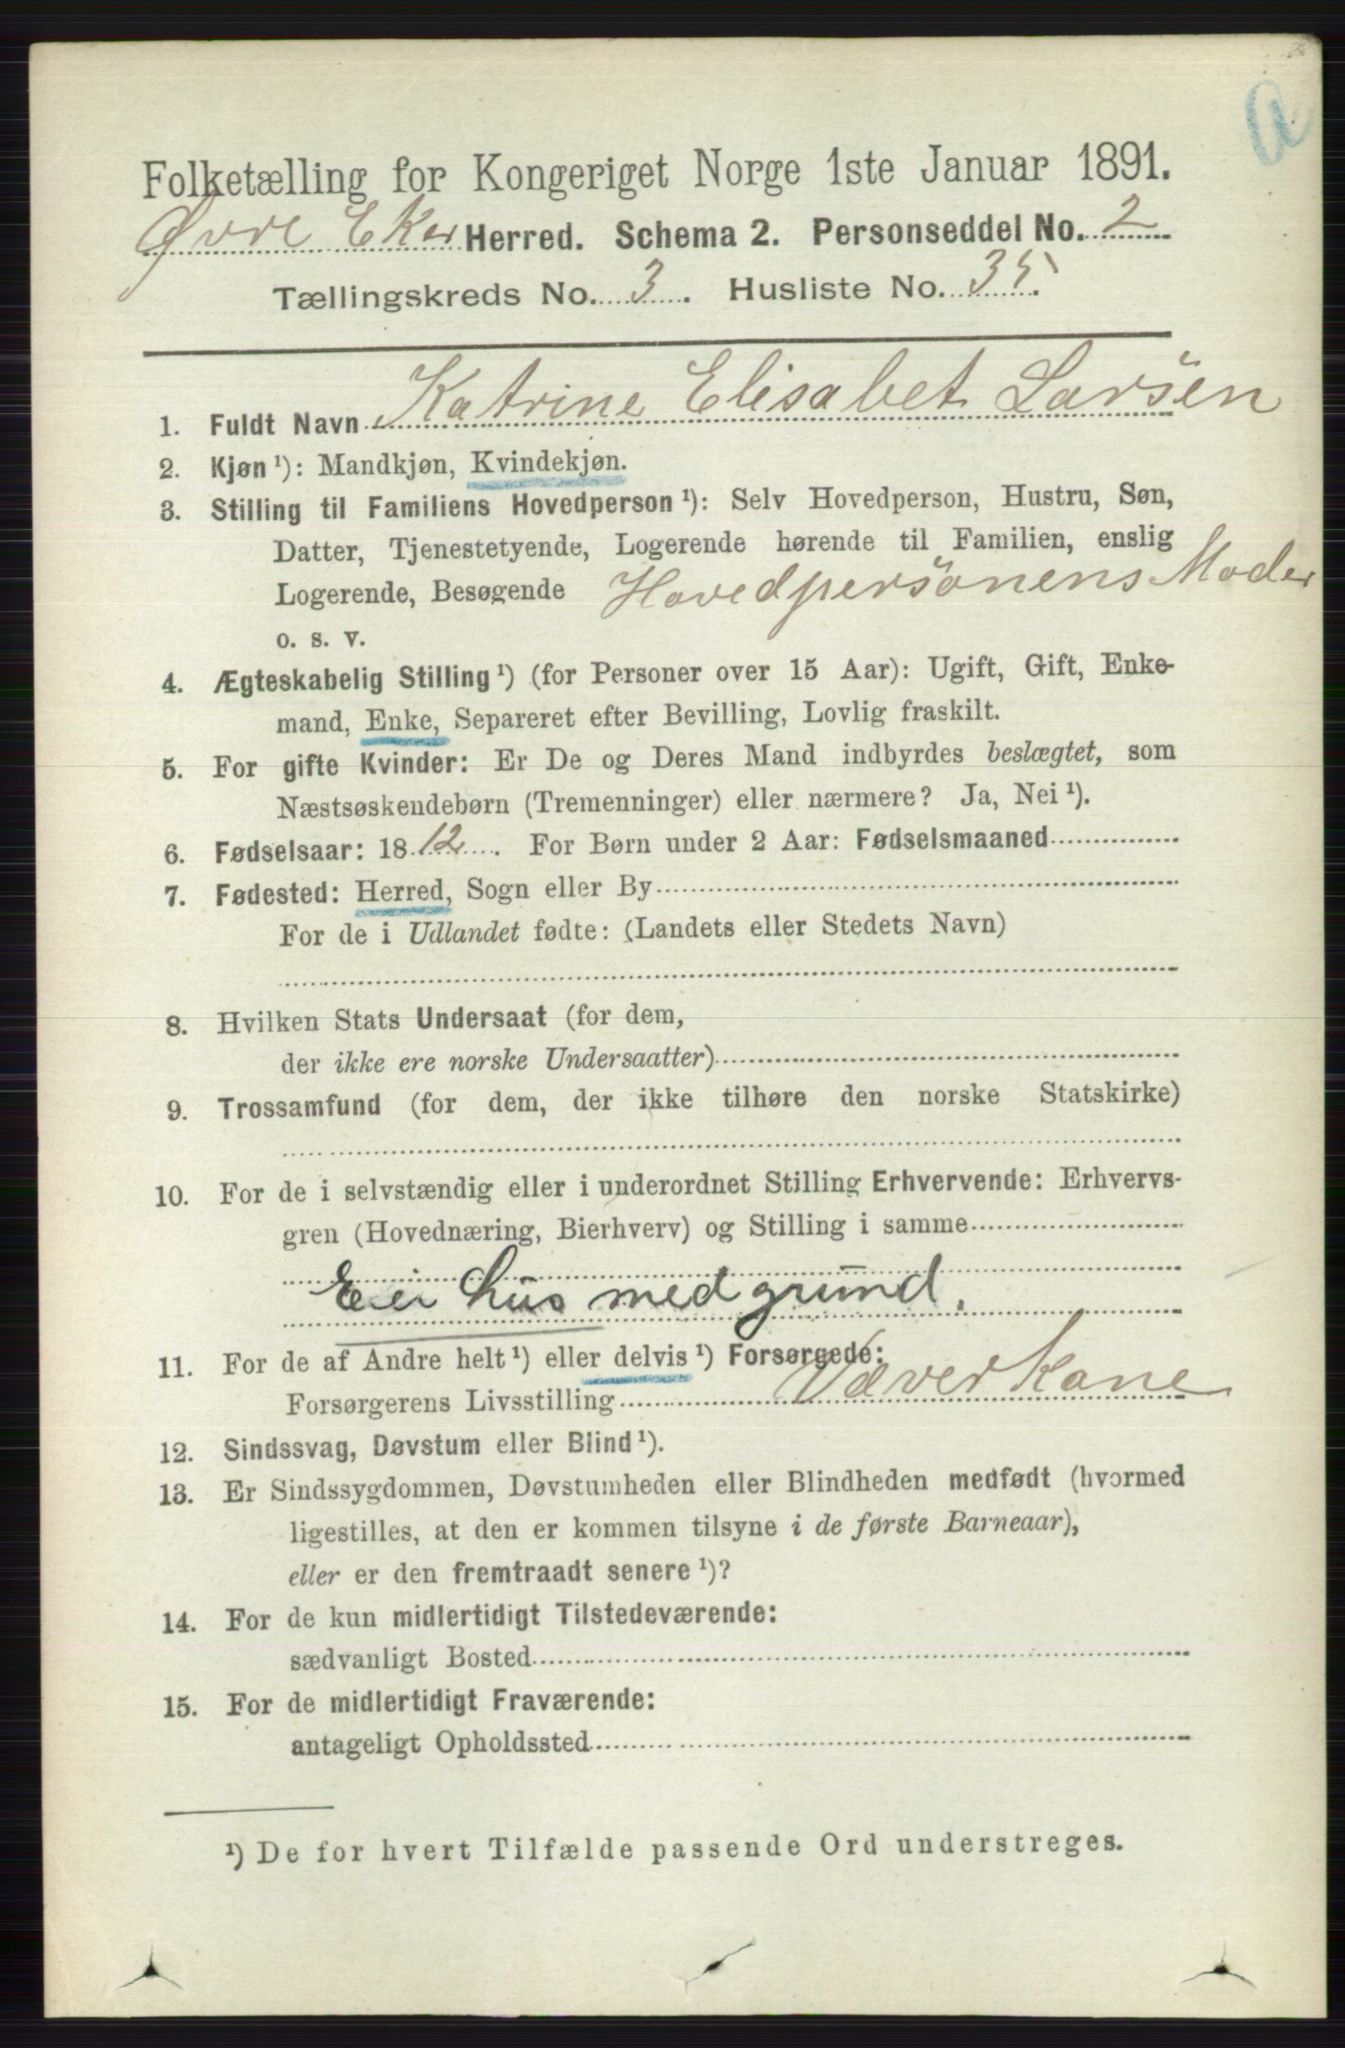 a
Folketælling for Kongeriget Norge 1ste Januar 1891.
Øvre Eker Herred. Schema 2. Personseddel No. 2
Tællingskreds No. 3. Husliste No. 35.
1. Fuldt Navn Katrine Elisabet Larsen
2. Kjøn ¹): Mandkjøn, Kvindekjøn.
3. Stilling til Familiens Hovedperson ¹): Selv Hovedperson, Hustru, Søn,
Datter, Tjenestetyende, Logerende hørende til Familien, enslig
Logerende, Besøgende Hovedpersonens Moder
o. s. v.
4. Ægteskabelig Stilling ¹) (for Personer over 15 Aar): Ugift, Gift, Enke-
mand, Enke, Separeret efter Bevilling, Lovlig fraskilt.
5. For gifte Kvinder: Er De og Deres Mand indbyrdes beslægtet, som
Næstsøskendebørn (Tremenninger) eller nærmere? Ja, Nei ¹).
6. Fødselsaar: 1812. For Børn under 2 Aar: Fødselsmaaned
7. Fødested: Herred, Sogn eller By
For de i Udlandet fødte: (Landets eller Stedets Navn)
8. Hvilken Stats Undersaat (for dem,
der ikke ere norske Undersaatter)
9. Trossamfund (for dem, der ikke tilhøre den norske Statskirke)
10. For de i selvstændig eller i underordnet Stilling Erhvervende: Erhvervs-
gren (Hovednæring, Bierhverv) og Stilling i samme
Eier hus med grund.
11. For de af Andre helt ¹) eller delvis ¹) Forsørgede:
Forsørgerens Livsstilling Væverkone
12. Sindssvag, Døvstum eller Blind ¹).
13. Er Sindssygdommen, Døvstumheden eller Blindheden medfødt (hvormed
ligestilles, at den er kommen tilsyne i de første Barneaar),
eller er den fremtraadt senere ¹)?
14. For de kun midlertidigt Tilstedeværende:
sædvanligt Bosted
15. For de midlertidigt Fraværende:
antageligt Opholdssted
¹) De for hvert Tilfælde passende Ord understreges.